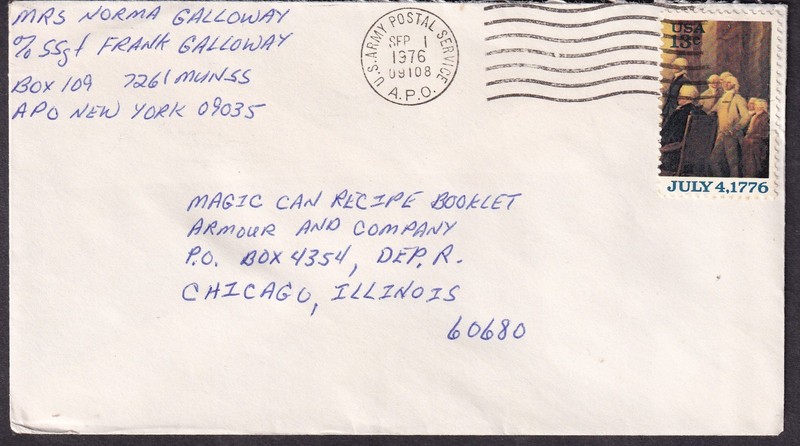 MRS NORMA GALLOWAY
% SSgt FRANK GALLOWAY
BOX 109 7261 MUNSS
APO NEW YORK 09035
U.S. ARMY POSTAL SERVICE
SEP 1
1976
09108
A.P.O.
USA
13c
JULY 4,1776
MAGIC CAN RECIPE BOOKLET
ARMOUR AND COMPANY
P.O. BOX 4354, DEP. R.
CHICAGO, ILLINOIS
60680